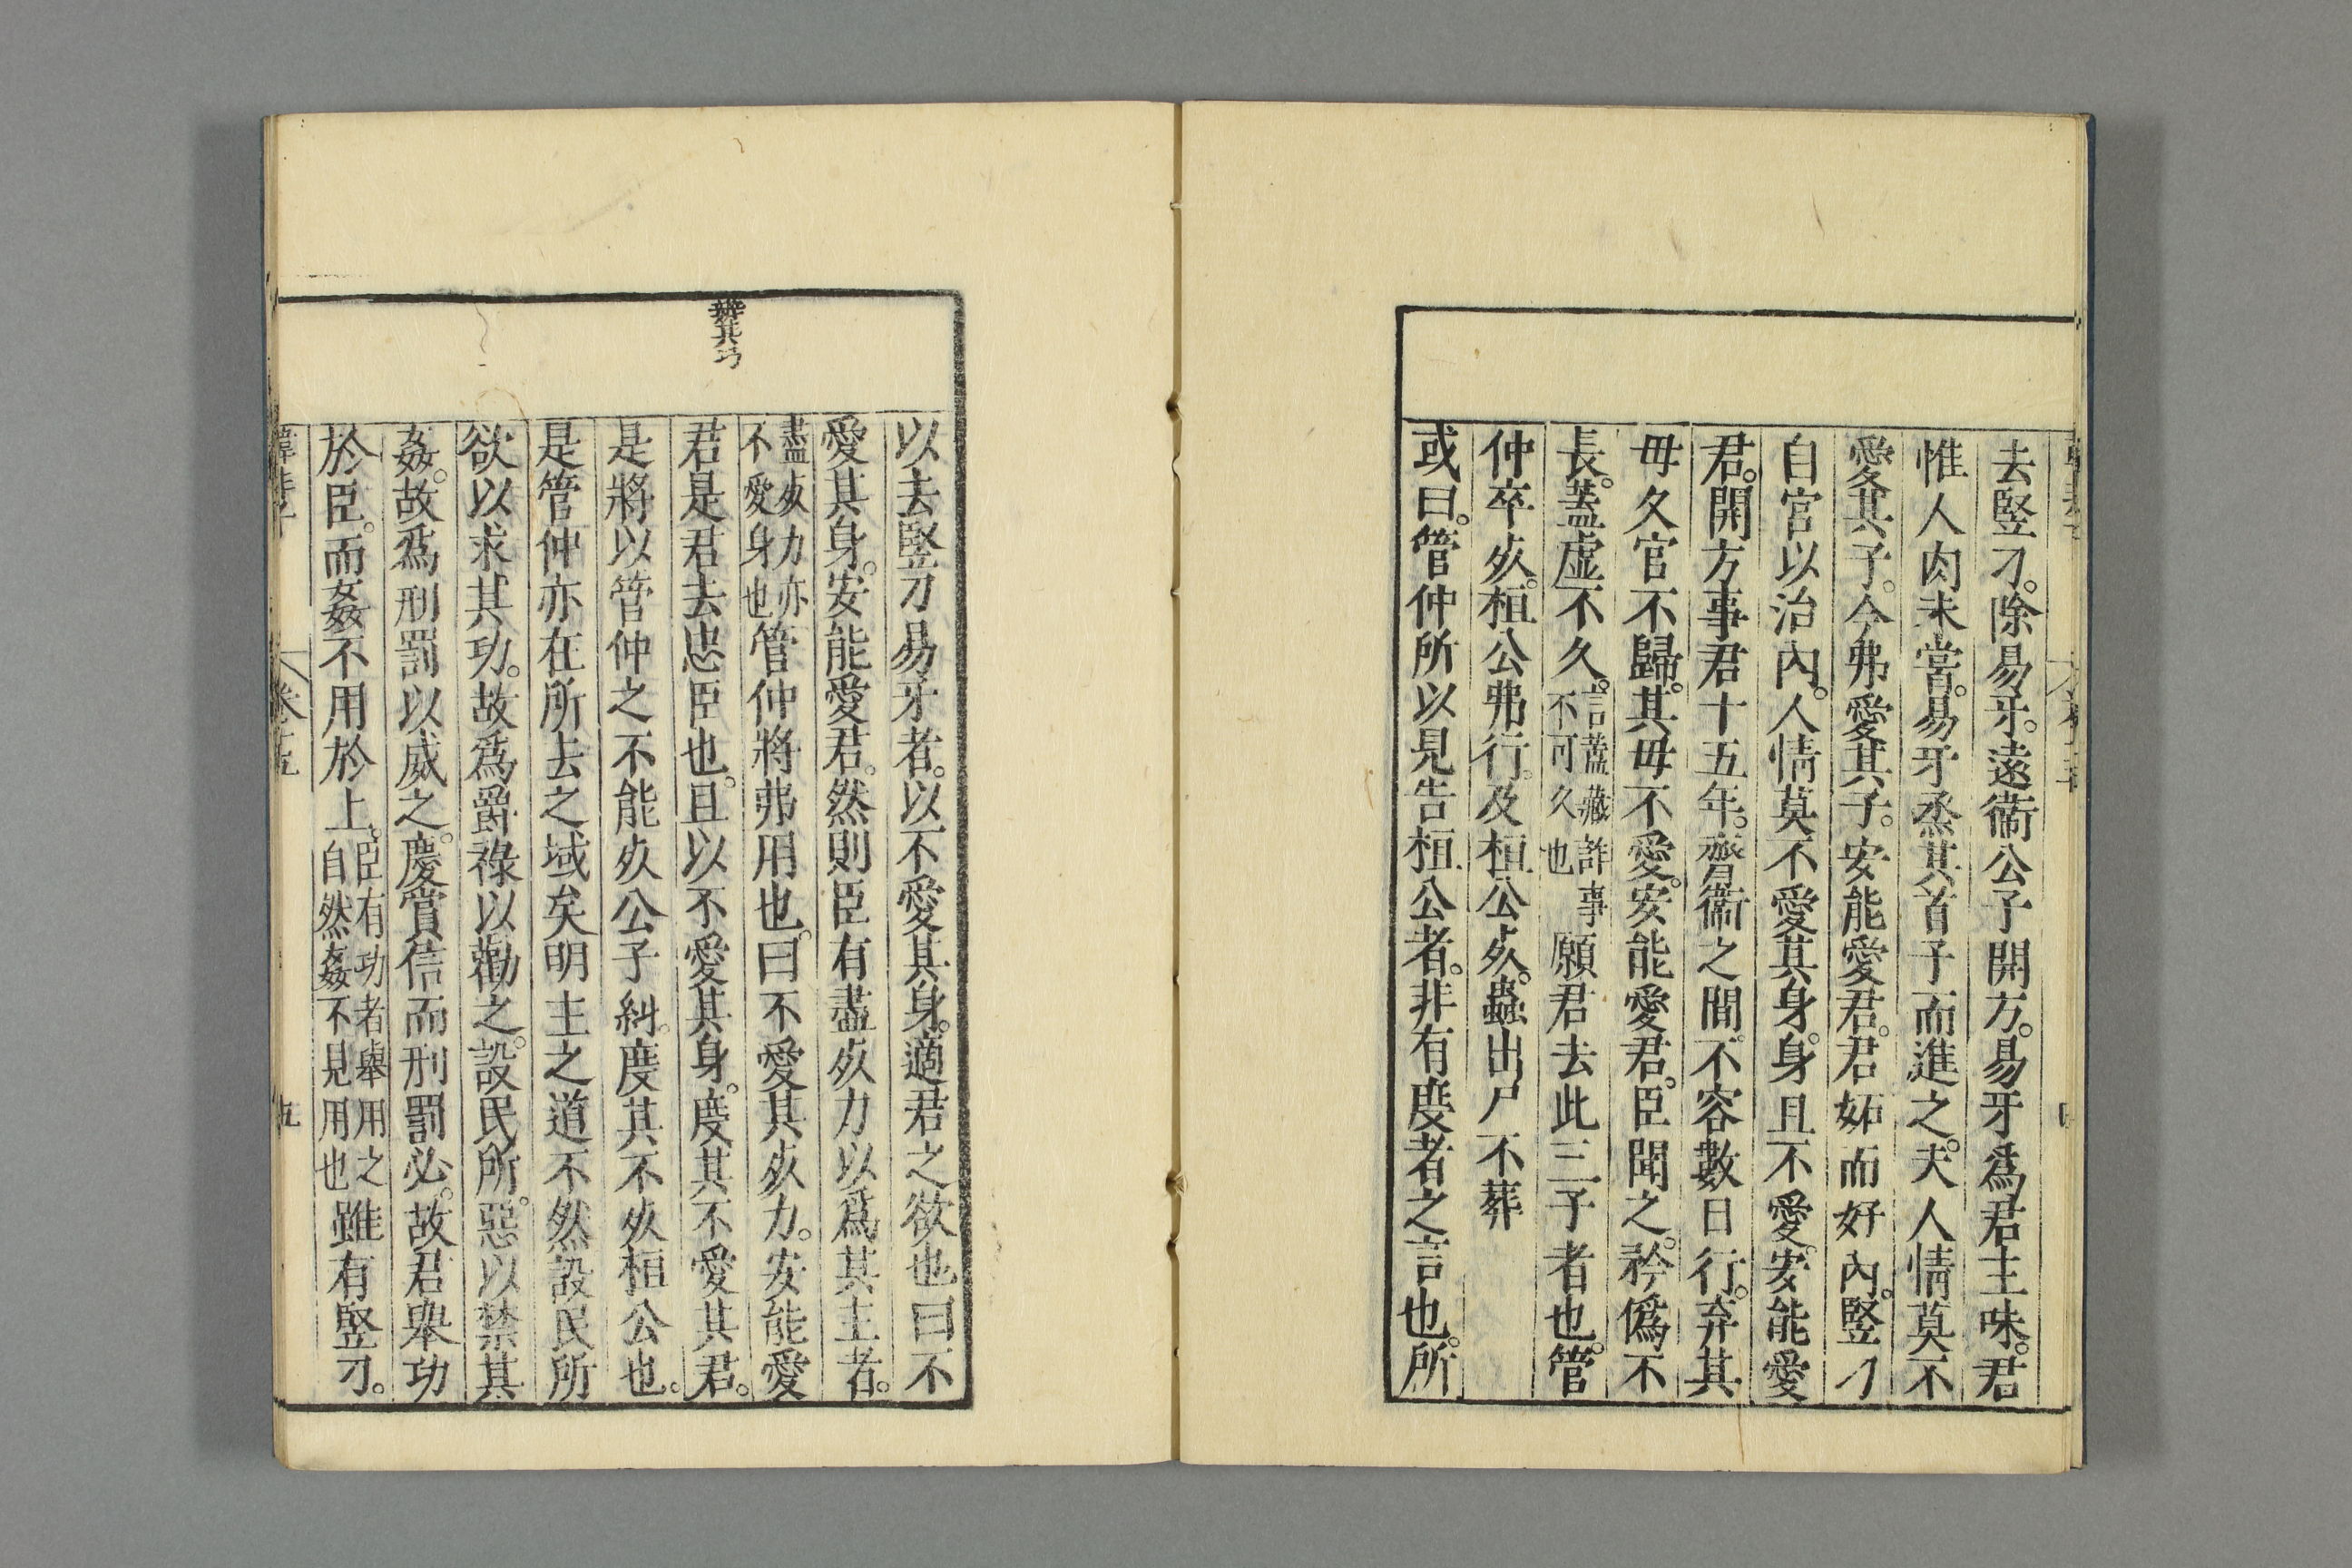 去竪刁。除易牙。遠衞公子開方。易牙爲君主味。君
惟人肉未嘗。易牙烝其首子而進之。夫人情莫不
愛其子。今弗愛其子。安能愛君。君妬而好內。竪刁
自宮以治內。人情莫不愛其身。身且不愛。安能愛
君。開方事君十五年。齊衞之間。不容數日行。弃其
母久官不歸。其母不愛。安能愛君。臣聞之。矜僞不
長。蓋虛不久。言蓋藏詐事不可久也願君去此三子者也。管
仲卒死。桓公弗行。及桓公死。蟲出尸不葬
或曰。管仲所以見告桓公者。非有度者之言也。所
以去竪刁易牙者。以不愛其身。適君之欲也曰不
愛其身。安能愛君。然則臣有盡死力以爲其主者。
盡死力亦不愛身也管仲將弗用也。曰不愛其死力。安能愛
君是君去忠臣也。且以不愛其身。度其不愛其君。
是將以管仲之不能死公子糾。度其不死桓公也。
是管仲亦在所去之域矣明主之道不然設民所
欲以求其功。故爲爵祿以勸之。設民所惡以禁其
姦。故爲刑罰以威之。慶賞信而刑罰必。故君舉功
於臣。而姦不用於上。臣有功者舉用之自然姦不見用也雖有竪刁。
韓非子 卷十五 五